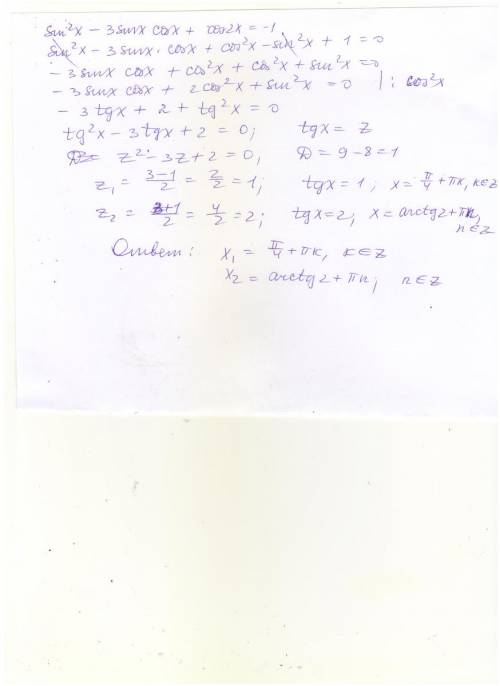 sin²x − 3sinx cosx + cos2x = −1
sin²x − 3sinx · cosx + cos²x − sin²x + 1 = 0
− 3sinx cosx + cos²x + cos²x + sin²x = 0
− 3sinx cosx + 2cos²x + sin²x = 0 | : cos²x
− 3tgx + 2 + tg²x = 0
tg²x − 3tgx + 2 = 0; tgx = z
z² − 3z + 2 = 0, D = 9 − 8 = 1
z₁ = (3−1)/2 = 2/2 = 1; tgx = 1; x = π/4 + πk, k∈z
z₂ = (3+1)/2 = 4/2 = 2; tgx = 2, x = arctg2 + πn,
n∈z
Ответ: x₁ = π/4 + πk, k∈z
x₂ = arctg2 + πn, n∈z